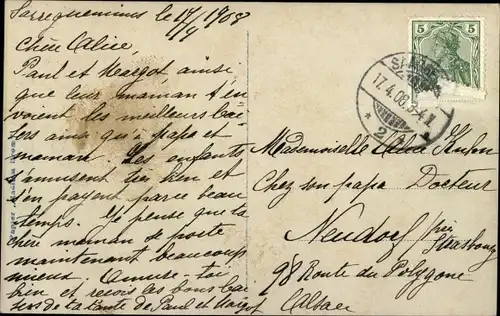 Sarreguemines le 17/4 1908
Chère Alice,
Paul et Margot ainsi
que leur maman t'en
voient les meilleurs bai
sers ainsi qu'à papa et
maman. Les enfants
s'amusent très bien et
s'en payent parce beau
temps. Je pense que la
chère maman se porte
maintenant beaucoup
mieux. Amuse-toi
bien et reçois les bons bai
sers de ta tante de Paul et Margot
5 5
17.4.08.
* 2
Mademoiselle Alice Kuhn
Chez son papa Docteur
Neudorf près
Strasbourg
98 Route du Polygone
Alsace